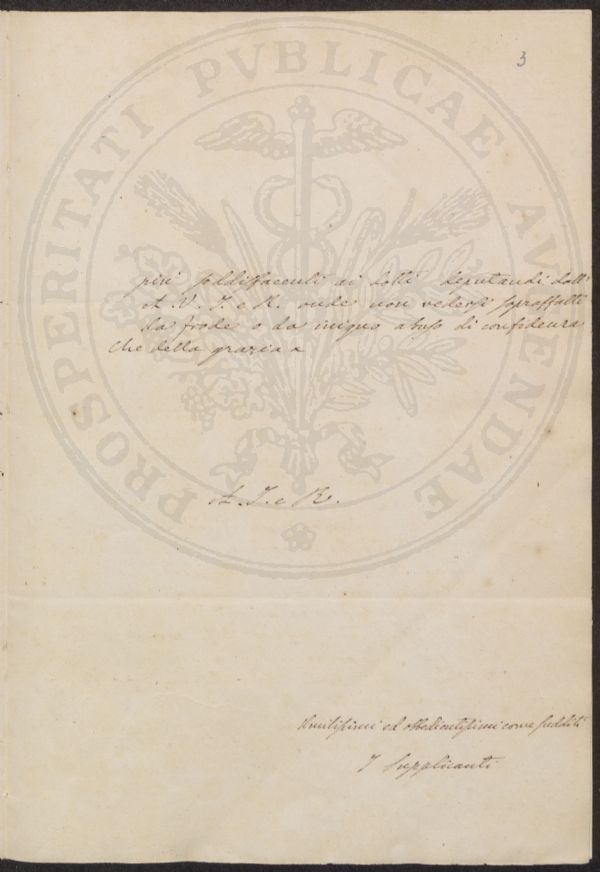 3
PROSPERITATI PVBLICAE AVGENDAE
più soddisfacenti ai dotti deputandi dall'
A. V. I. e R. onde non vedersi sopraffatti
da frode o da iniquo abuso di confidenza
che della grazia
A. I. e R.
Umilissimi ed obbedientissimi come sudditi
I Supplicanti